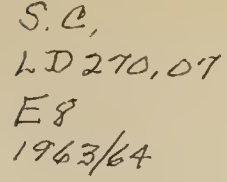 S.C,
LD270,07
E8
1963/64